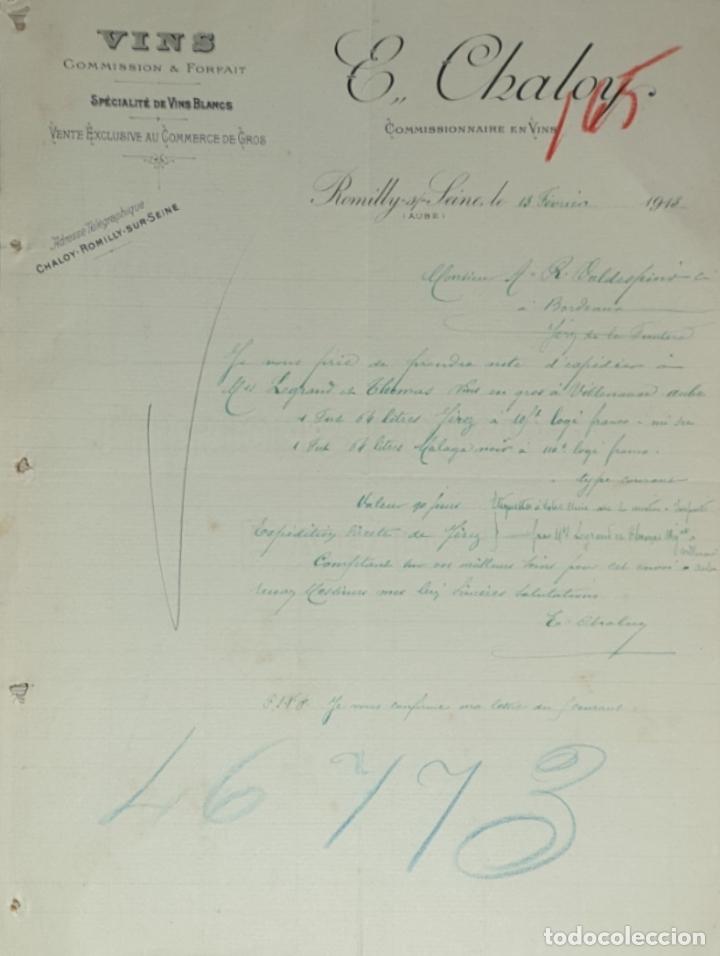 VINS
COMMISSION & FORFAIT
SPÉCIALITÉ DE VINS BLANCS
VENTE EXCLUSIVE AU COMMERCE DE GROS
E. Chaloy.
COMMISSIONNAIRE EN VINS
165
Adresse Télégraphique
CHALOY-ROMILLY-SUR-SEINE
Romilly-s/-Seine, le 13 Février 1913
(AUBE)
Monsieur A. R. Valdespino
à Bordeaux
Jerez de la Frontera
Je vous prie de prendre note d'expédier à
Mrs Legrand & Thomas Vins en gros à Villenauxe Aube
1 Fut 64 litres Jérez à logé franco
1 Fut 64 litres Malaga noir à logé franco
type courant
Valeur 90 jours
Expédition directe de Jérez
par Mrs Legrand & Thomas
Comptant sur vos meilleurs soins pour cet envoi
Messieurs mes sincères salutations
E. Chaloy
Je vous confirme ma lettre du courant
46773
todocoleccion.net